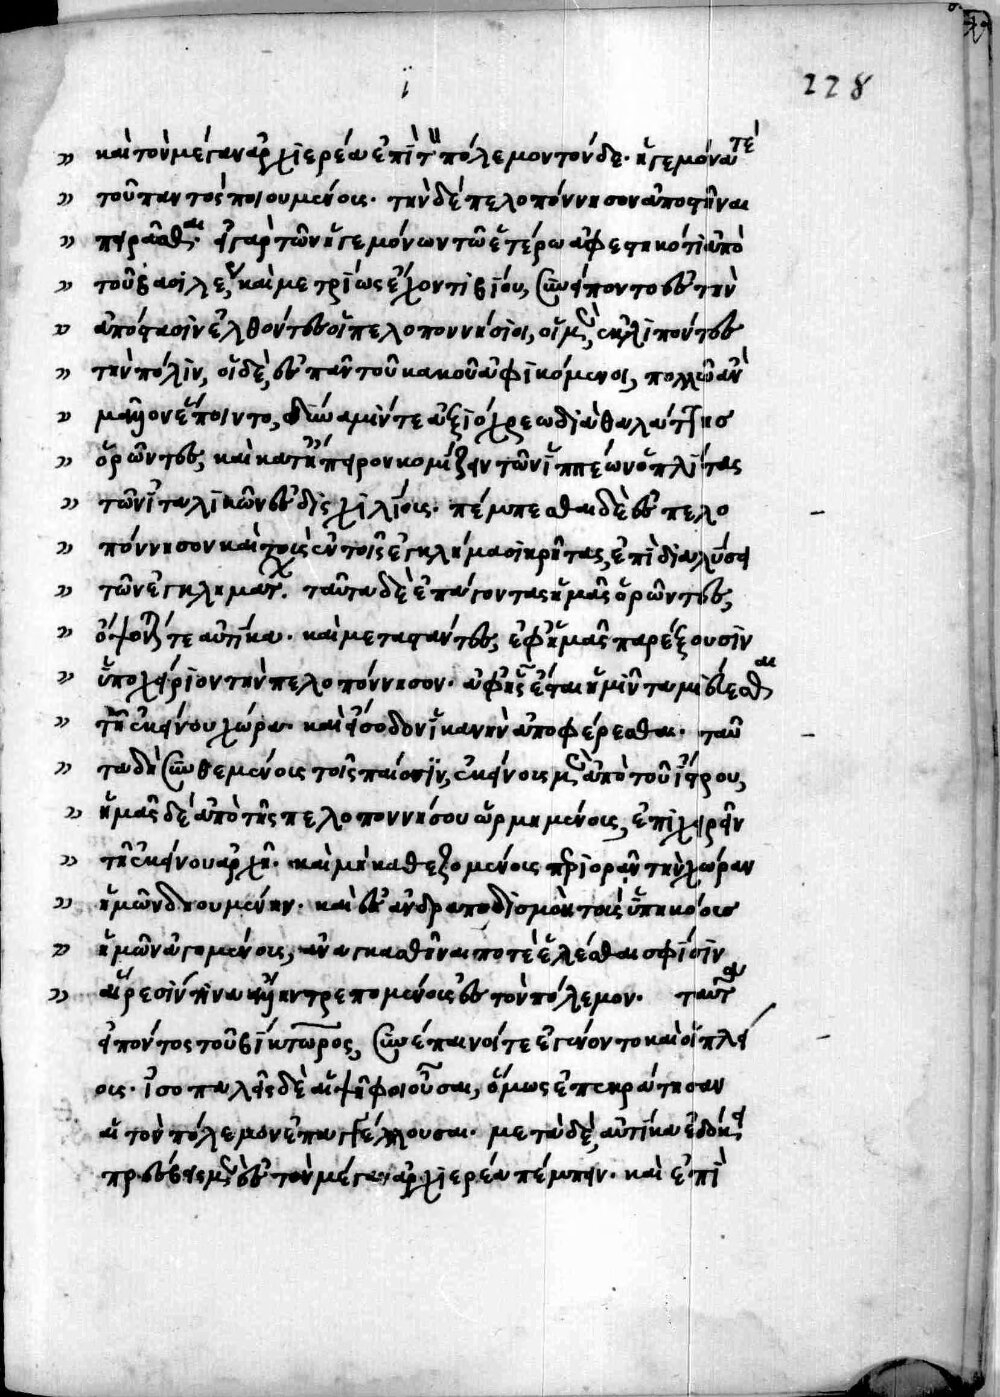 ϊ
228
καὶ τὸν μέγαν ἀρχιερέα ἐπὶ τὸν πόλεμον τόνδε. ἡγεμόνα τέ
τοῦ παντὸς ποιουμένοις. τὴν δὲ πελοπόννησον ἀποστῆναι
πειρᾶσθαι. εἰ γὰρ τῶν ἡγεμόνων τῶ ἑτέρω ἀφεστηκότι ἀπὸ
τοῦ βασιλέως καὶ μετρίως ἔχοντι βίου, συνείποντο ἐς τὴν
ἀπόστασιν ἐλθόντες οἱ πελοποννήσιοι, οἱ μὲν ἐκλιπόντες
τὴν πόλιν, οἱ δὲ, ἐς πᾶν τοῦ κακοῦ ἀφικόμενοι, πολλῶ ἂν
μᾶλλον ἕποιντο, δύναμίν τε ἀξιόχρεω διὰ θαλάττης
ὁρῶντες, καὶ κατ' ἤπειρον κομίζειν τῶν ἱππέων ὁπλίτας
τῶν ἰταλικῶν ἐς δὶς χιλίοις. πέμπεσθαι δὲ ἐς πελο
πόννησον καὶ τοὺς ἐν τοῖς ἐγκλήμασι κρῆτας, ἐπὶ διαλύσει
τῶν ἐγκλημάτων. ταῦτα δὲ ἐπάγοντας ἡμᾶς ὁρῶντες,
ὄψονταί τε αὐτίκα. καὶ μεταστάντες, ἐφ' ἡμᾶς παρέξουσιν
ὑποχείριον τὴν πελοπόννησον. ἀφ' ἧς ἔσται ἡμῖν ταμιεύεσθαι
τῆ ἐκείνου χώρα. καὶ εἴσοδον ἱκανὴν ἀποφέρεσθαι. ταῦ
τα δὴ συνθεμένοις τοῖς παίοσιν, ἐκείνοις μὲν ἀπὸ τοῦ ἴστρου,
ἡμᾶς δὲ ἀπὸ τῆς πελοποννήσου ὡρμημένοις, ἐπιχειρεῖν
τῆ ἐκείνου ἀρχῆ. καὶ μὴ καθεζομένοις περιορᾶν τὴν χώραν
ἡμῶν δηουμένην. καὶ ἐς ἀνδραποδισμὸν τοὺς ὑπηκόοις
ἡμῶν ἀγομένοις, ἀναγκασθῆναι ποτὲ ἑλέσθαι σφίσιν
αἵρεσίν τινα ἄλλην τρεπομένοις ἐς τὸν πόλεμον. ταῦτα
εἰπόντος τοῦ βίκτωρος, συνέπαινοί τε ἐγένοντο καὶ οἱ πλεί
οις. ἰσοπαλεῖς δὲ αἱ ψῆφοι οὖσαι, ὅμως ἐπεκράτησαν
αἱ τὸν πόλεμον ἐπαγγέλλουσαι. μετὰ δὲ, αὐτίκα ἐδόκει
πρέσβεις μὲν ἐς τὸν μέγαν ἀρχιερέα πέμπειν. καὶ ἐπὶ